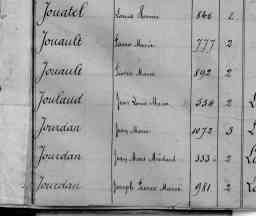 Jouatel Louis Pierre 846 2
Jouault Pierre Marie 777 2
Jouault Pierre Marie 892 2
Joulaud Jean Louis Marie 554 2
Jourdan Jean Marie 1072 3
Jourdan Jean Marie 333 2
Jourdan Joseph Pierre Marie 981 2